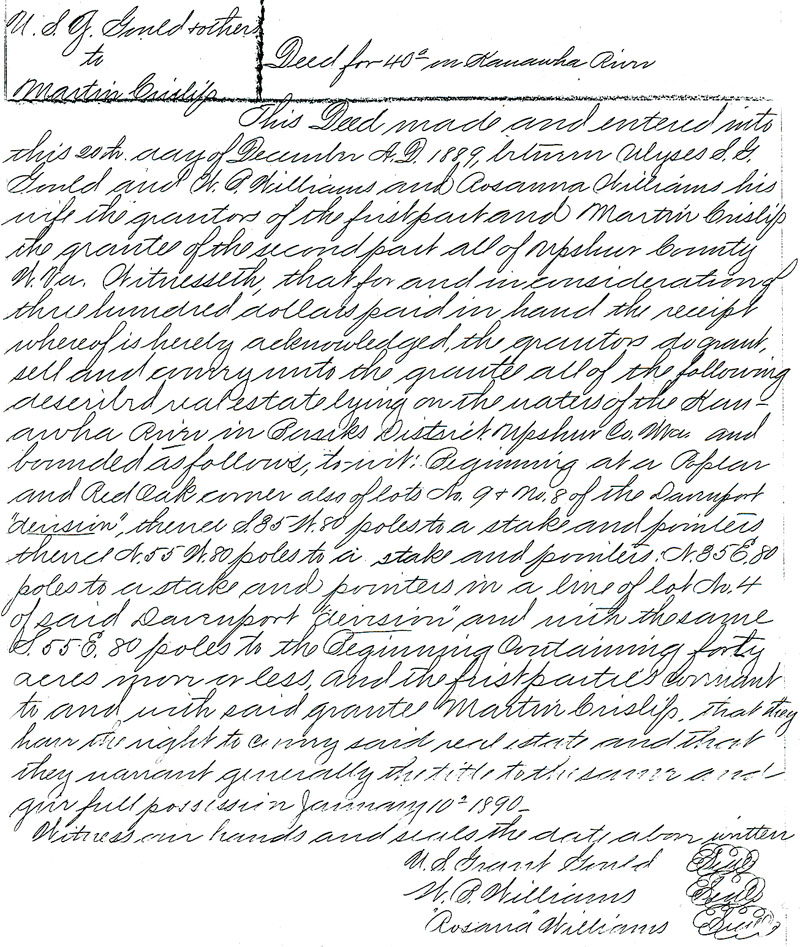 U. S. G. Gould & others
to
Martin Crislip
Deed for 40a on Kanawha River
This Deed made and entered into
this 20th day of December A.D. 1889, between Ulyses S. G.
Gould and W. P. Williams and Rosanna Williams his
wife the grantors of the first part and Martin Crislip
the grantee of the second part all of Upshur County
W. Va. Witnesseth, that for and in consideration of
three hundred dollars paid in hand the receipt
whereof is herely acknowledged, the grantors do grant,
sell and convey unto the grantee all of the following
described real estate lying on the waters of the Kan-
awha River in District Upshur Co, Wva and
bounded as follows, to-wit: Beginning at a Poplar
and Red Oak corner also of lots No. 9 & No. 8 of the Davenport
"devision", thence S.35 W. 80 poles to a stake and pointers
thence N. 55 W. 80 poles to a stake and pointers. N. 35 E. 80
poles to a stake and pointers in a line of lot No. 4
of said Davenport "devision" and with the same
S. 55 E. 80 poles to the Beginning Containing forty
acres more or less, and the first parties covenant
to and with said grantee Martin Crislip, that they
have the right to convey said real estate and that
they warrant generally the title to the same and
give full possession January 10th 1890-
Witness our hands and seals the date above written
U. S. Grant Gould Seal
W. P. Williams Seal
"Rosana" Williams Seal